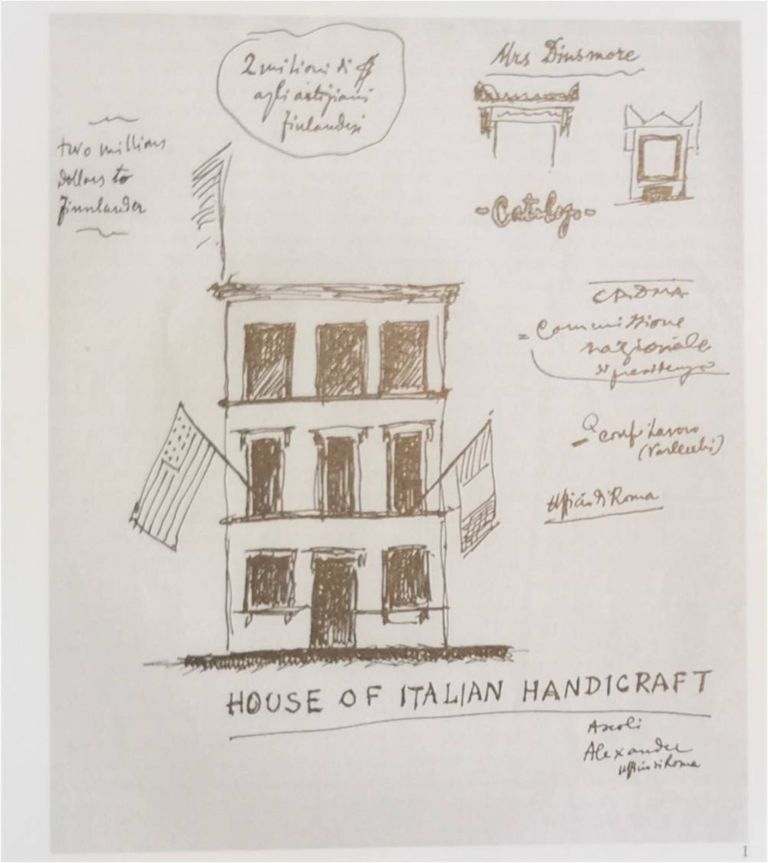 2 milioni di $
agli artigiani
finlandesi
Mrs Dinsmore
two millions
dollars to
Finnlander
-Catalogo-
CADMA
= Commissione
nazionale
Confilavoro
Ufficio di Roma
HOUSE OF ITALIAN HANDICRAFT
Ascoli
Alexander
Ufficio di Roma
1